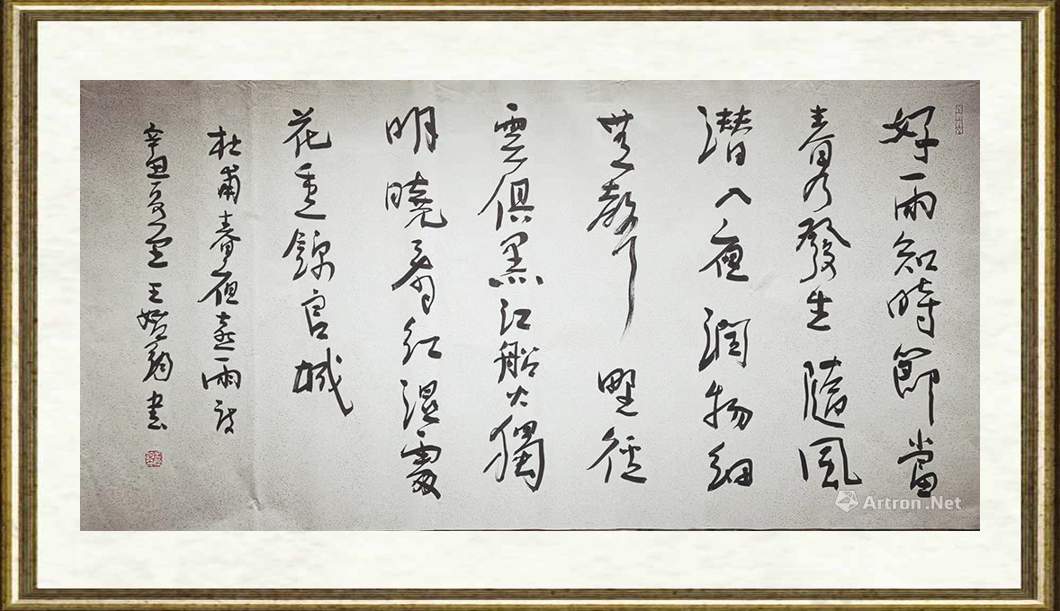 好雨知時節當
春乃發生隨風
潜入夜潤物細
無聲野徑
雲俱黑江船火獨
明曉看红濕處
花重錦官城
杜甫春夜喜雨詩
辛丑 王 書
Artron.Net